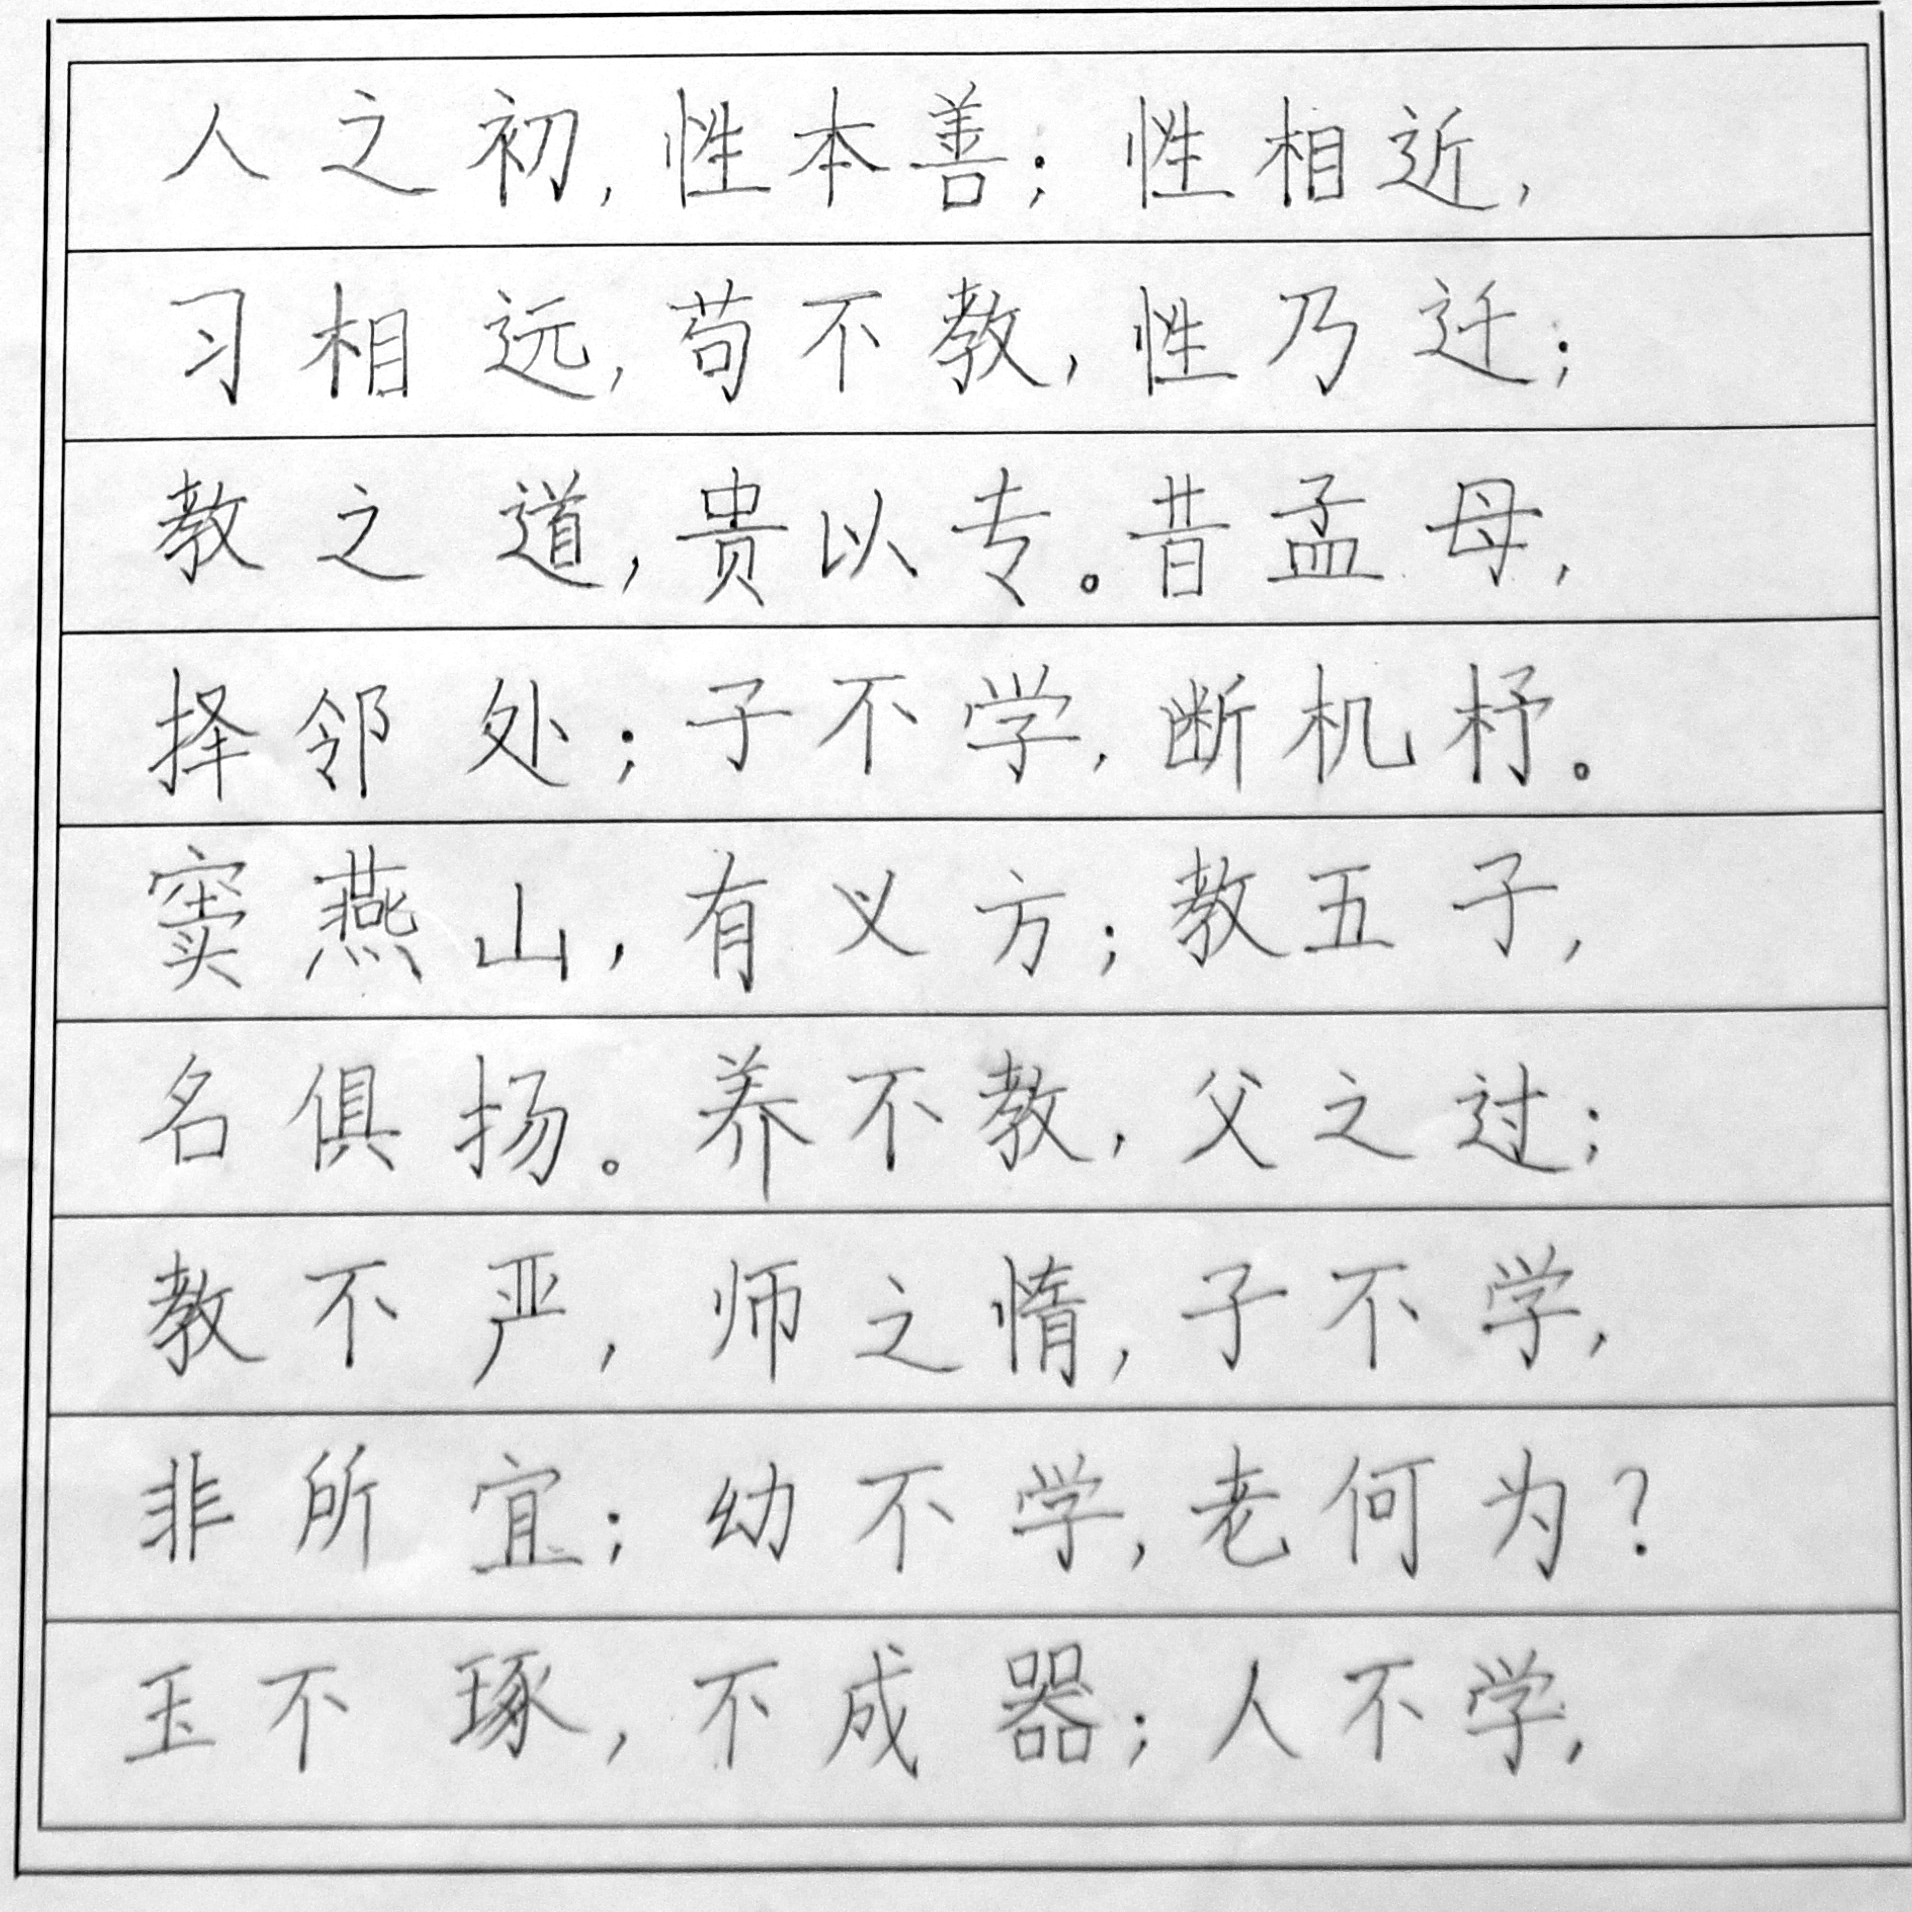 人之初,性本善;性相近,
习相远,苟不教,性乃迁;
教之道,贵以专。昔孟母,
择邻处;子不学,断机杼。
窦燕山,有义方;教五子,
名俱扬。养不教,父之过;
教不严,师之惰,子不学,
非所宜;幼不学,老何为?
玉不琢,不成器;人不学,